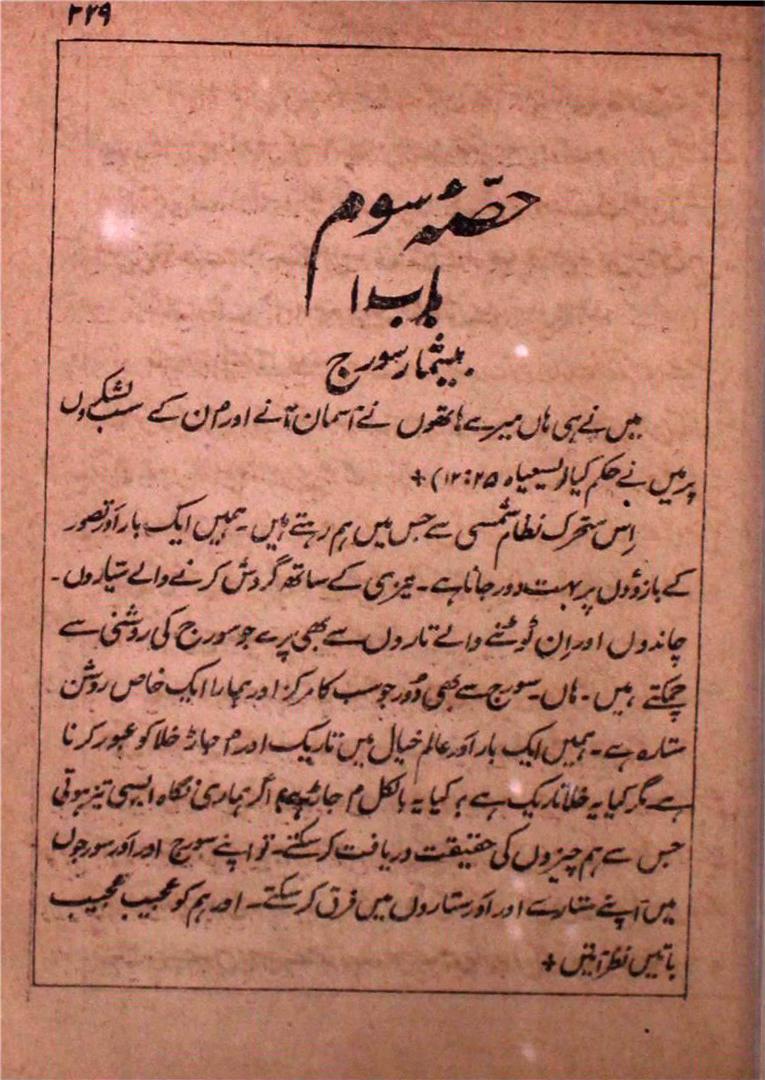 ۲۲۹
حصّہٴ سوم
باب ۱
بیشمار سورج
میں نے ہی ہاں میرے ہاتھوں نے آسمان تانے اور اُن کے سب لشکروں
پر میں نے حکم کیا (یسعیاہ ۴۵:۱۲) +
اِس متحرک نظام شمسی سے جس میں ہم رہتے ہیں۔ ہمیں ایک بار اَور تصور
کے بازوؤں پر بہت دور جانا ہے۔ تیزی کے ساتھ گردش کرنے والے سیّاروں۔
چاندوں اور اِن ٹوٹنے والے تاروں سے بھی پرے جو سورج کی روشنی سے
چمکتے ہیں۔ ہاں۔ سورج سے بھی دُور جو سب کا مرکز اور ہمارا ایک خاص روشن
ستارہ ہے۔ ہمیں ایک بار اَور عالم خیال میں تاریک اور اُجاڑ خلا کو عبور کرنا
ہے مگر کیا یہ خلا تاریک ہے؟ کیا یہ بالکل اُجاڑ ہے؟ اگر ہماری نگاہ ایسی تیز ہوتی
جس سے ہم چیزوں کی حقیقت دریافت کر سکتے۔ تو اپنے سورج اور اَور سورجوں
میں اپنے ستارے اور اَور ستاروں میں فرق کر سکتے۔ اور ہم کو عجیب عجیب
باتیں نظر آتیں +